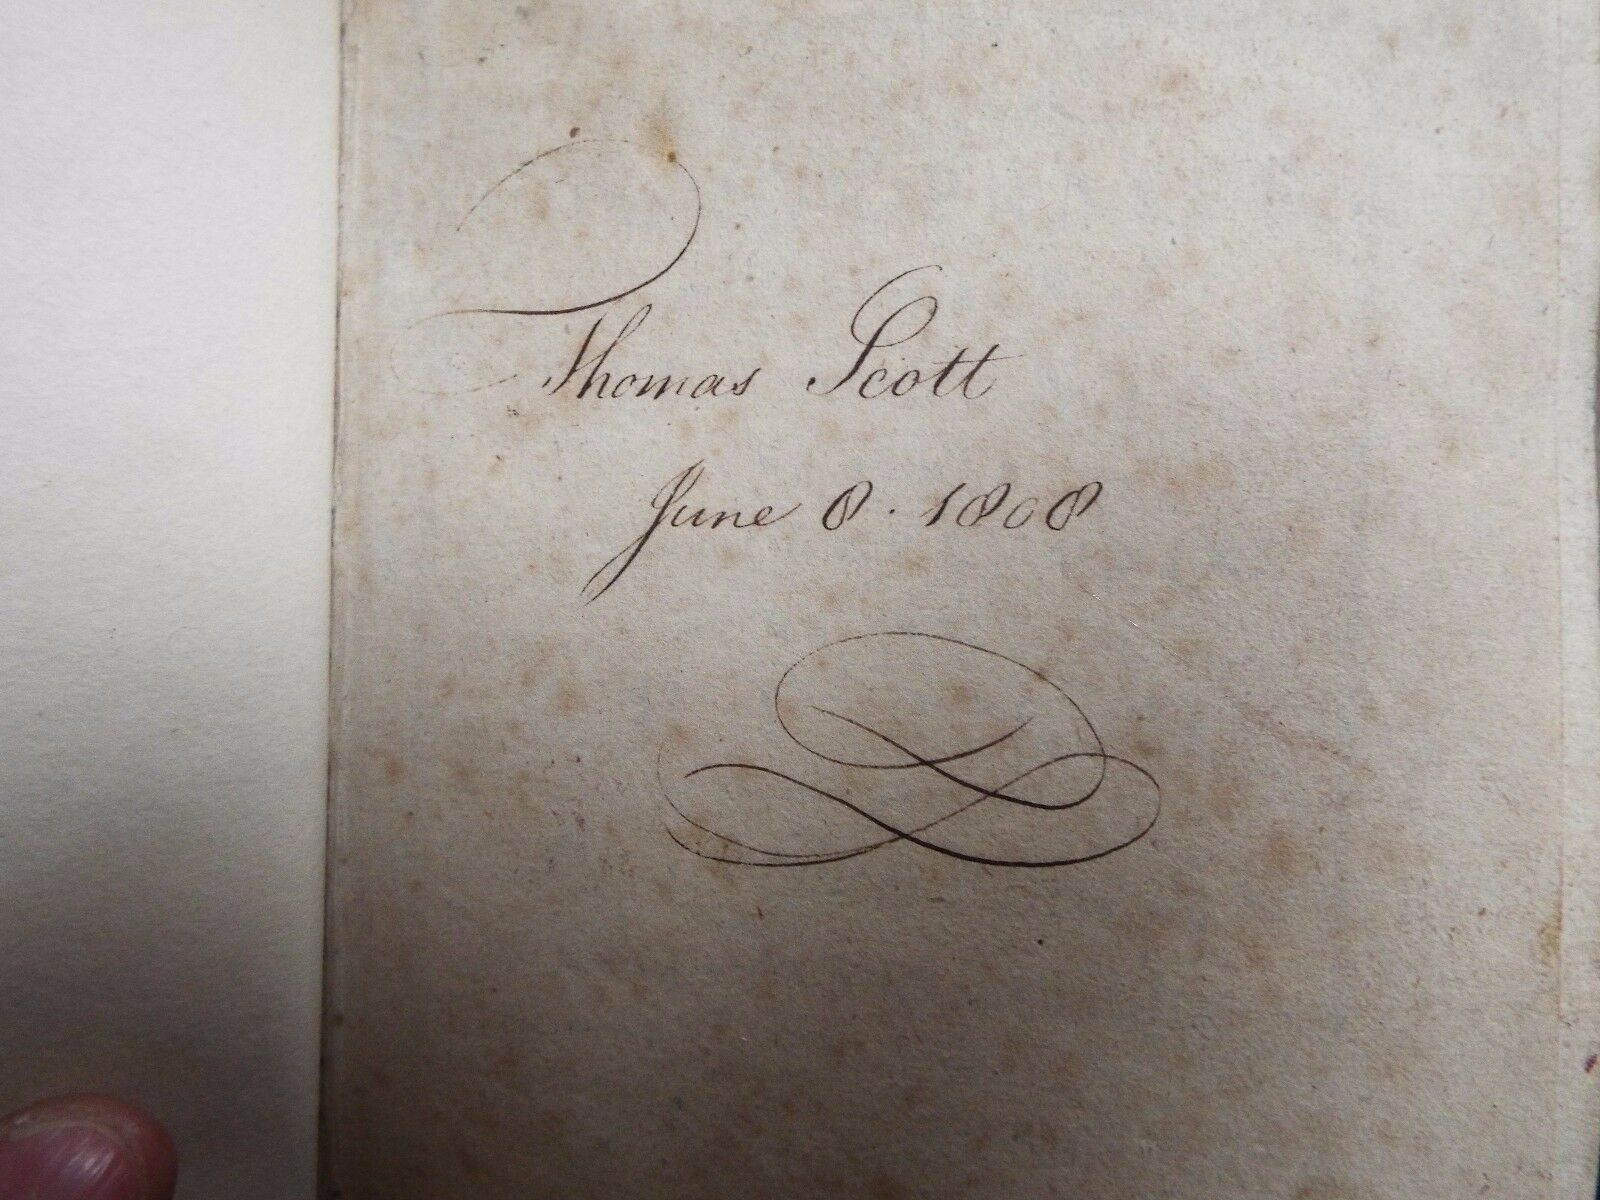 Thomas Scott
June 8. 1808